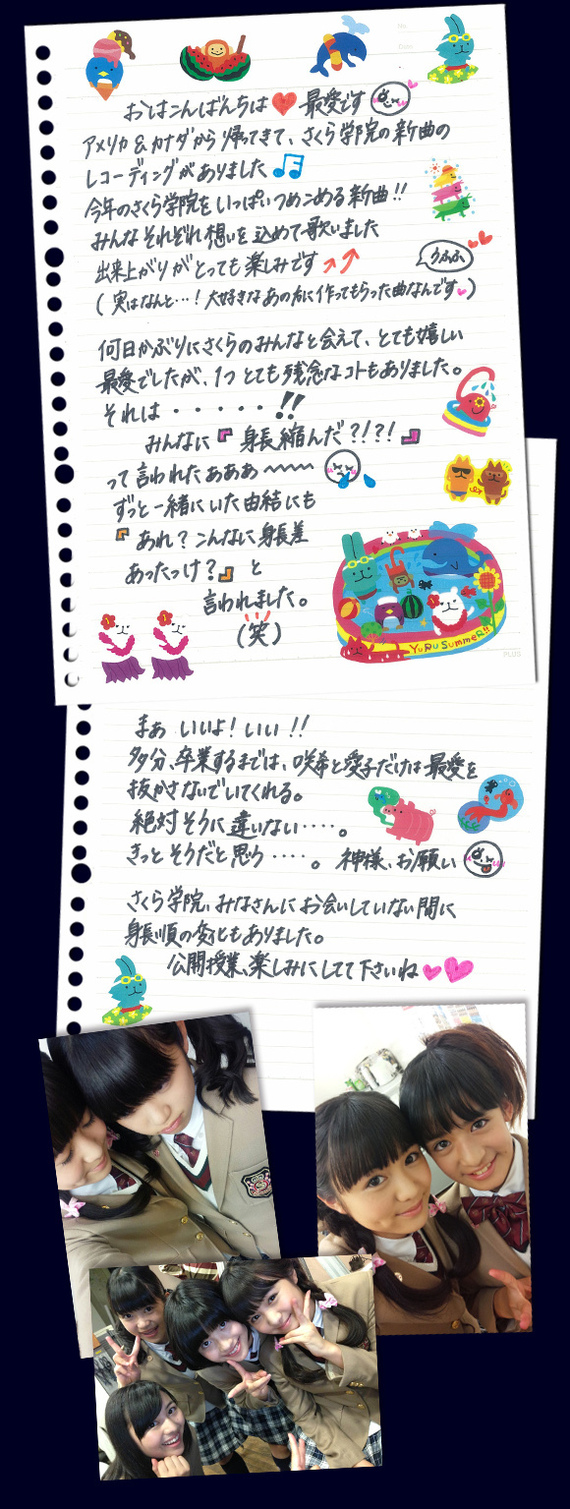 No.
Date
おはこんばんちは♥最愛です
アメリカ&カナダから帰ってきて、さくら学院の新曲の
レコーディングがありました♫
今年のさくら学院をいっぱいつめこめる新曲!!
みんなそれぞれ想いを込めて歌いました
出来上がりがとっても楽しみです↗↗
うふふ
(実はなんと…!大好きなあの方に作ってもらった曲なんです♥)
何日かぶりにさくらのみんなと会えて、とても嬉しい
最愛でしたが、1つとても残念なコトもありました。
それは・・・・・・!!
みんなに『身長縮んだ?!?!』
って言われたぁぁぁ〜〜〜
ずっと一緒にいた由結にも
『あれ?こんなに身長差
あったっけ?』と
言われました。
(笑)
YURU SUMMER!!
PLUS
まぁ いいよ!いい!!
多分、卒業するまでは、咲希と愛子だけは最愛を
抜かさないでいてくれる。
絶対そうに違いない・・・・。
きっとそうだと思う・・・・。神様、お願い
さくら学院、みなさんにお会いしていない間に
身長順の変ともありました。
公開授業、楽しみにしてて下さいね♥♥